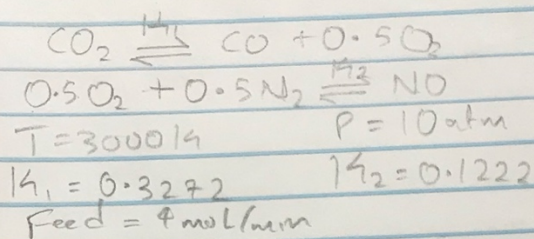 CO₂ ⇌ CO + 0.5O₂
K₁
0.5O₂ + 0.5N₂ ⇌ NO
K₂
T = 3000K
P = 10atm
K₁ = 0.3272
K₂ = 0.1222
Feed = 4mol/min